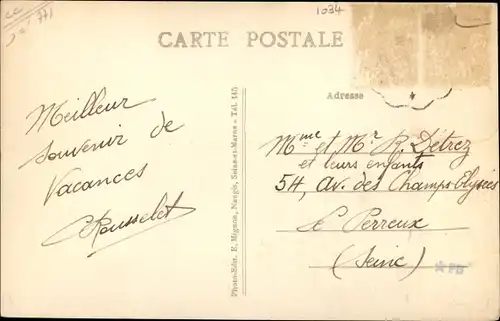 1034
CARTE POSTALE
Adresse
Meilleur
souvenir de
Vacances
Rousselet
Photo-Edit. E. Mignon, Nangis, Seine-et-Marne - Tél. 145
Mme et Mr R. Détrez
et leurs enfants
54, av. des Champs Elysées
Le Perreux
(Seine)